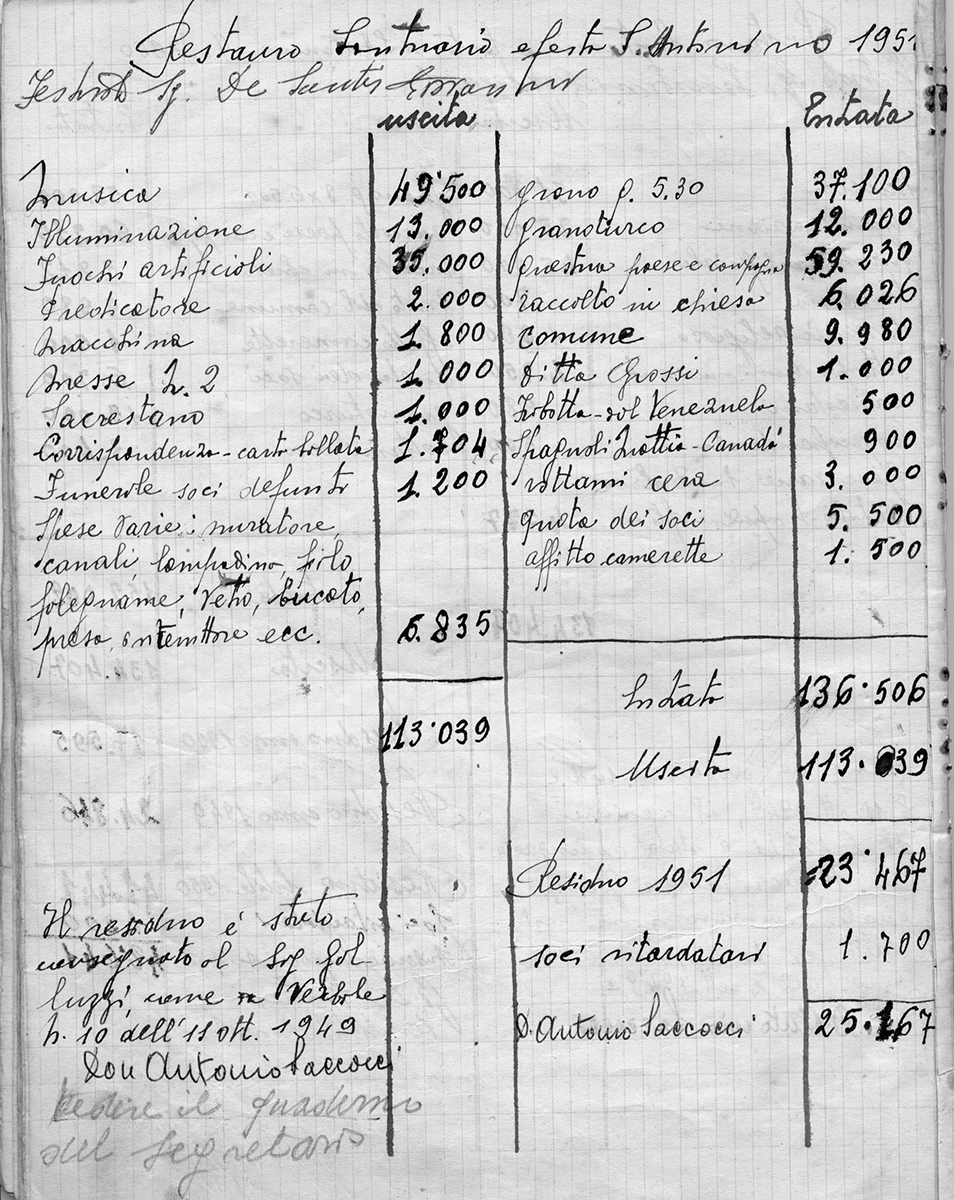 Restauro Santuario e festa S. Antonino 1951
Sg. De Santis
uscita Entrata
Musica 49.500 grano q. 5.30 37.100
Illuminazione 13.000 granoturco 12.000
Fuochi artificiali 35.000 questua paese e campagna 59.230
Predicatore 2.000 raccolto in chiesa 6.026
Macchina 1.800 comune 9.980
Messe N. 2 1.000 Ditta Grossi 1.000
Sacrestano 1.000 dal Venezuela 500
Corrispondenza - carta bollata 1.704 Spagnoli Canadà 900
Funerale soci defunti 1.200 rottami cera 3.000
Spese varie: muratore, quota dei soci 5.500
canali, lampadina, filo affitto camerette 1.500
falegname, vetro, bucato,
presa, interuttore ecc. 6.835
Entrata 136.506
113.039
Uscita 113.039
Residuo 1951 =23.467
Il residuo è stato
consegnato al Sig Gal- soci ritardatari 1.700
luzzi, come Verbale
n. 10 dell'11 ott. 1949 D. Antonio Saccocci 25.167
Don Antonio Saccocci
Vedere il quaderno
del Segretario